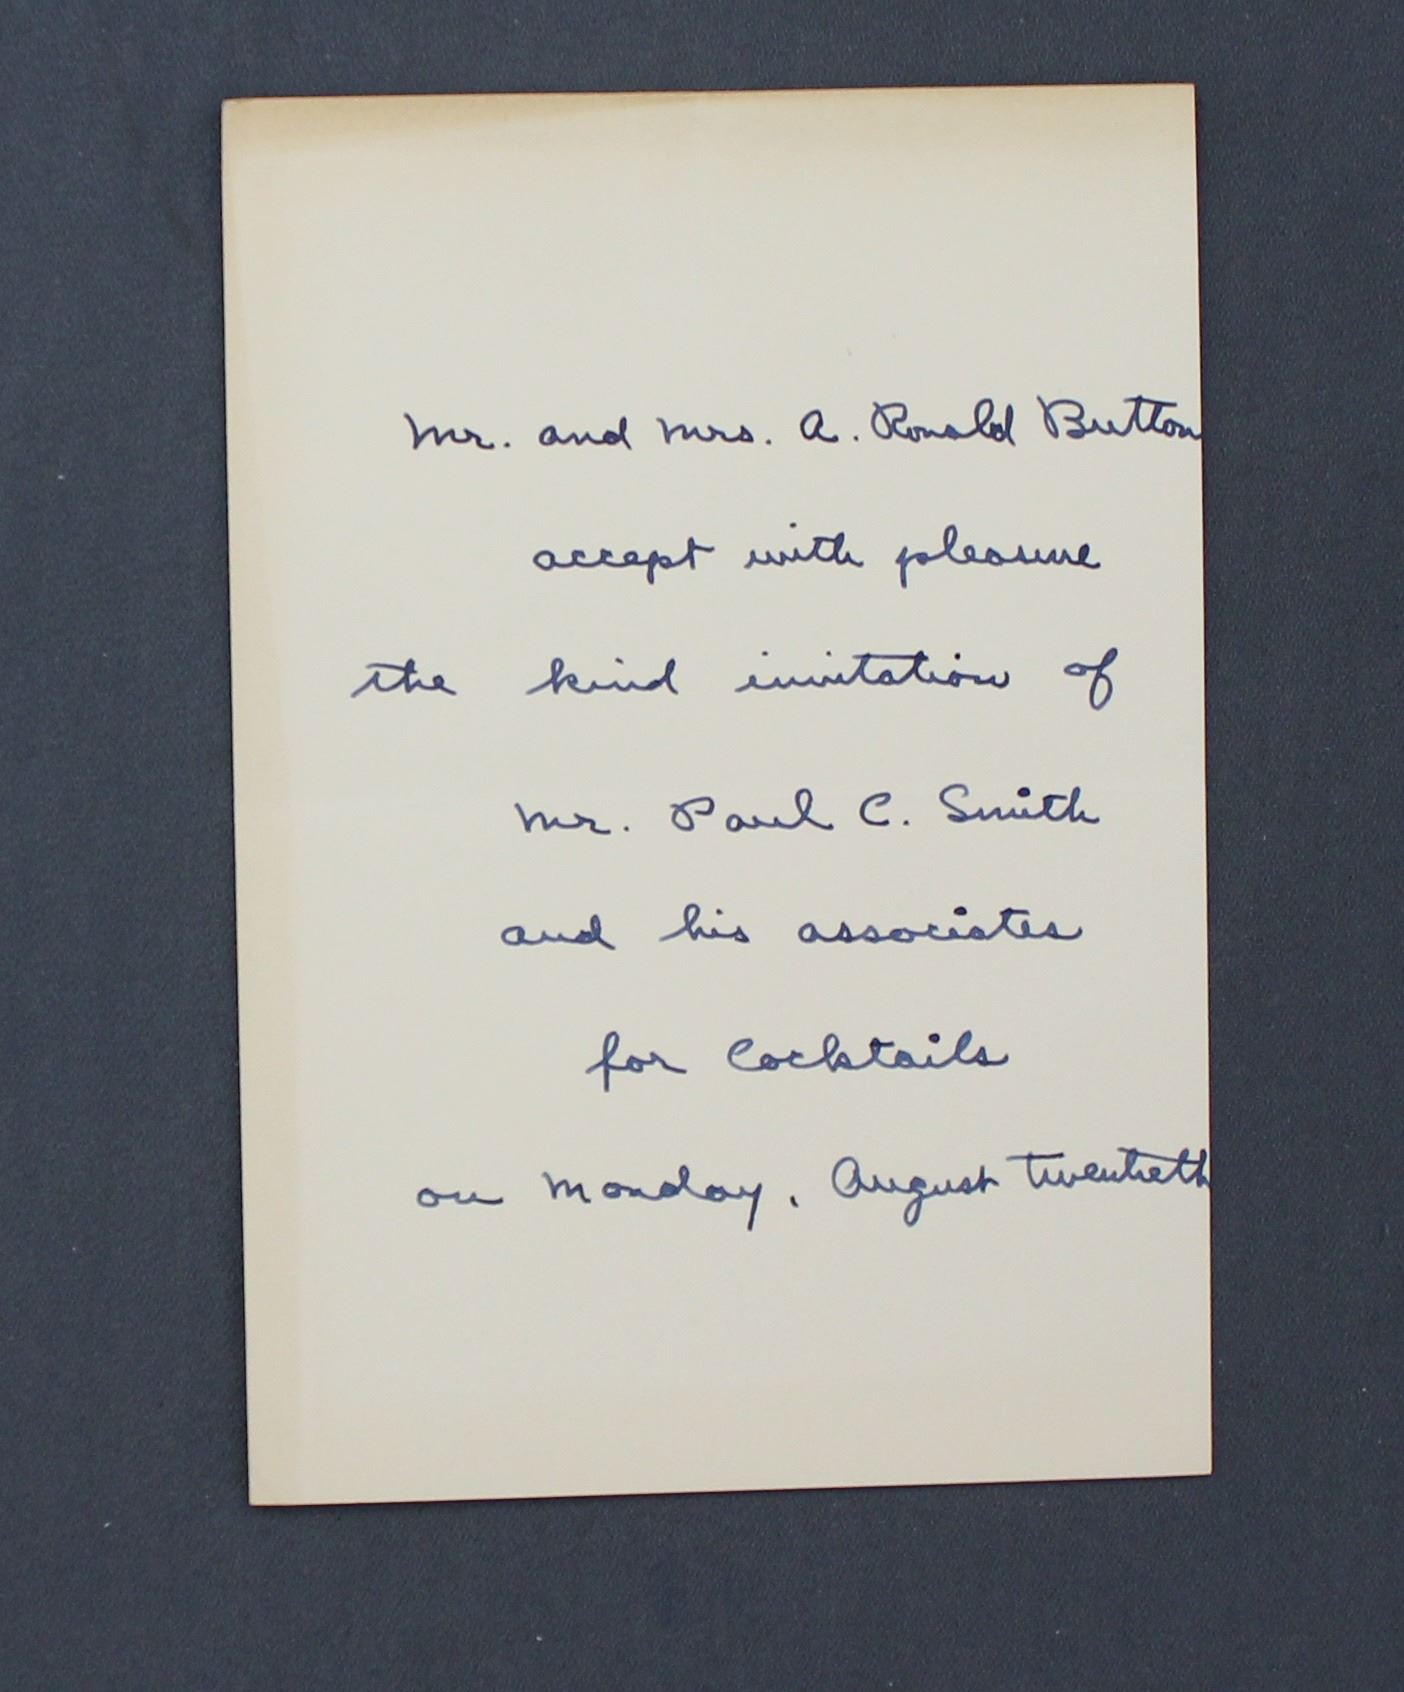 Mr. and Mrs. A. Ronald Button
accept with pleasure
the kind invitation of
Mr. Paul C. Smith
and his associates
for Cocktails
on Monday, August twentieth